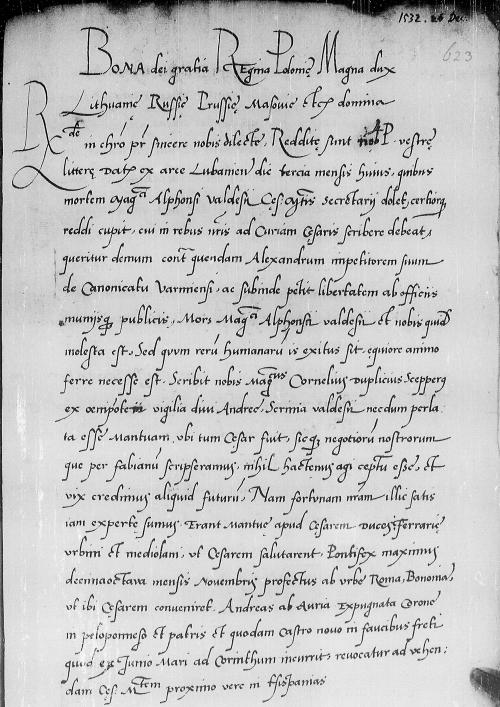 1532. 26 Dec.
623
BONA dei gratia Regina Polonię Magna dux
Lithuanię Russię Prussię Masovię etcꝫ domina
Rde in chro pr sincere nobis dilecte. Redditę sunt nob P. vestrę
litterę datę ex arce Lubamen die tercia mensis huius, quibus
mortem Magci Alphonsi Valdesii Cęs. Mtis secretarii dolet, certiorq
reddi cupit, cui in rebus nris ad Curiam Cesaris scribere debeat,
queritur demum cont quendam Alexandrum impetitorem suum
de Canonicatu Varmiensi, ac subinde petit libertatem ab officiis
munijsq publicis. Mors Magci Alphonsi Valdesii et nobis quid
molesta est. Sed quum rerū humanarū is exitus sit, equiore animo
ferre necesse est. Scribit nobis Magcus Cornelius Duplicius Scepperq
ex oenipote vigilia divi Andreę, Scrinia Valdesii necdum perla
ta esse Mantuam, ubi tum Cesar fuit, sicq negotiorū nostrorum
que per Fabianū scripseramus, nihil hactenus agi ceptū esse, et
vix credimus aliquid futurū. Nam fortunam nram illic satis
iam experte sumus. Erant Mantuę apud Cęsarem duces Ferrarię
Urbini et Mediolani, ut Cesarem salutarent. Pontifex maximus
decimaoctava mensis Novembris profectus ab urbe Roma, Bononia,
ut ibi Cesarem conveniret. Andreas ab Auria expugnata Corone
in peloponneso et patris et quodam castro novo in faucibus freti
quod ex Junio Mari ad Corinthum incurrit, revocatur ad vehen:
dam Cęs. Mtem proximo vere in Hispanias